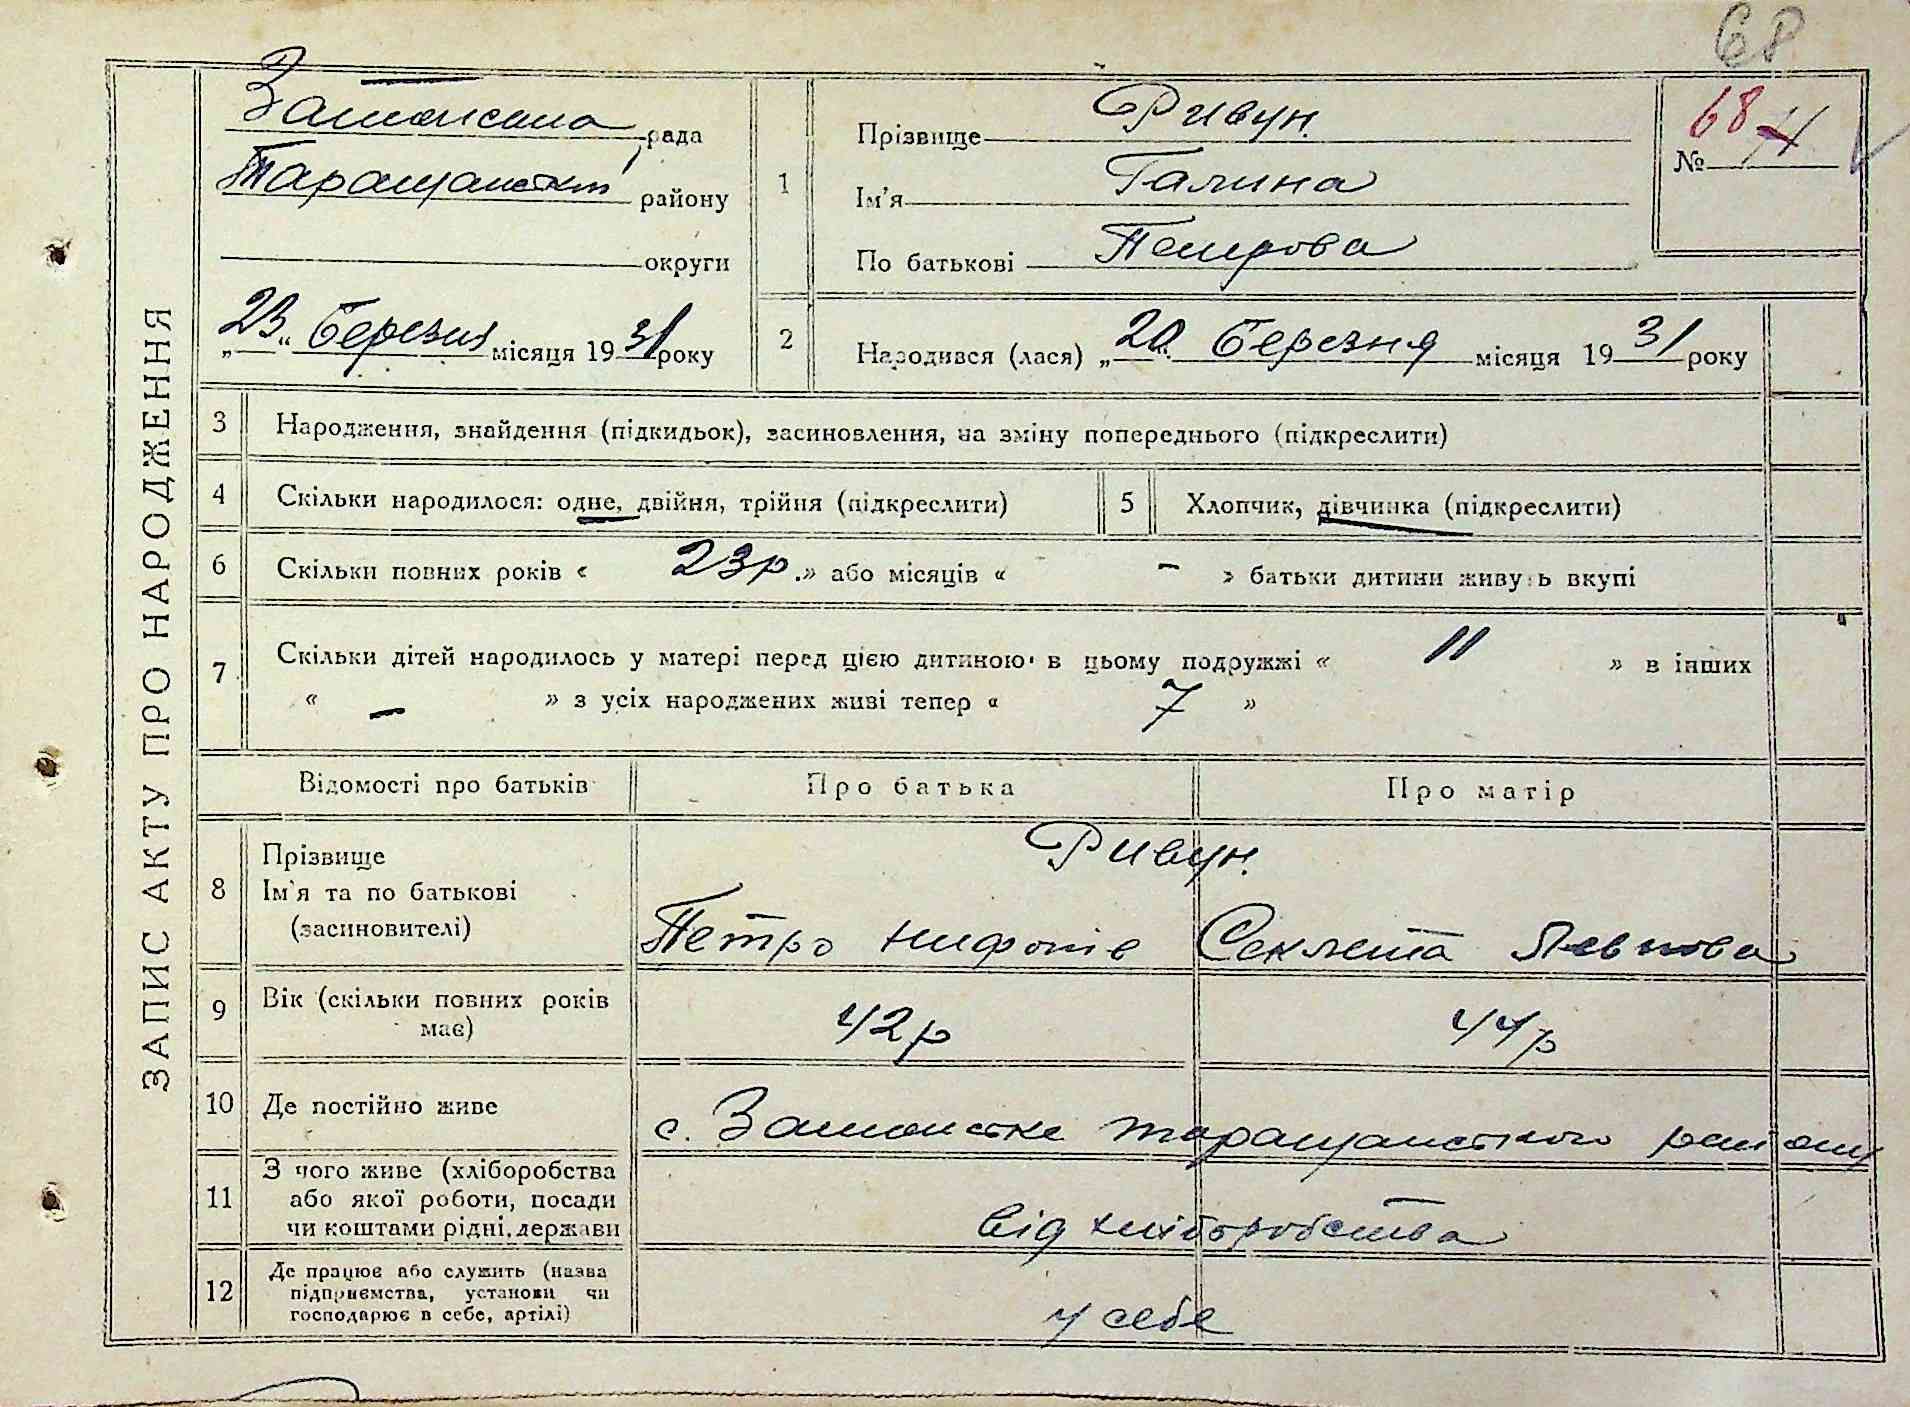 68
ЗАПИС АКТУ ПРО НАРОДЖЕННЯ
рада
району
округи
„23“ березня місяця 1931 року
1
Прізвище Ривун.
Ім'я Галина
По батькові Петрова
№ 68
2
Народився (лася) „20“ березня місяця 1931 року
3
Народження, знайдення (підкидьок), засиновлення, на зміну попереднього (підкреслити)
4
Скільки народилося: одне, двійня, трійня (підкреслити)
5
Хлопчик, дівчинка (підкреслити)
6
Скільки повних років « 23 р. » або місяців « – » батьки дитини живуть вкупі
7
Скільки дітей народилось у матері перед цією дитиною в цьому подружжі « 11 » в інших
« – » з усіх народжених живі тепер « 7 »
Відомості про батьків
Про батька
Про матір
8
Прізвище
Ім'я та по батькові
(засиновителі)
Ривун.
Петро
Секлета
9
Вік (скільки повних років
має)
42 р
44 р
10
Де постійно живе
с. таращанського району
11
З чого живе (хліборобства
або якої роботи, посади
чи коштами рідні, держави
від хліборобства
12
Де працює або служить (назва
підприємства, установи чи
господарює в себе, артілі)
у себе